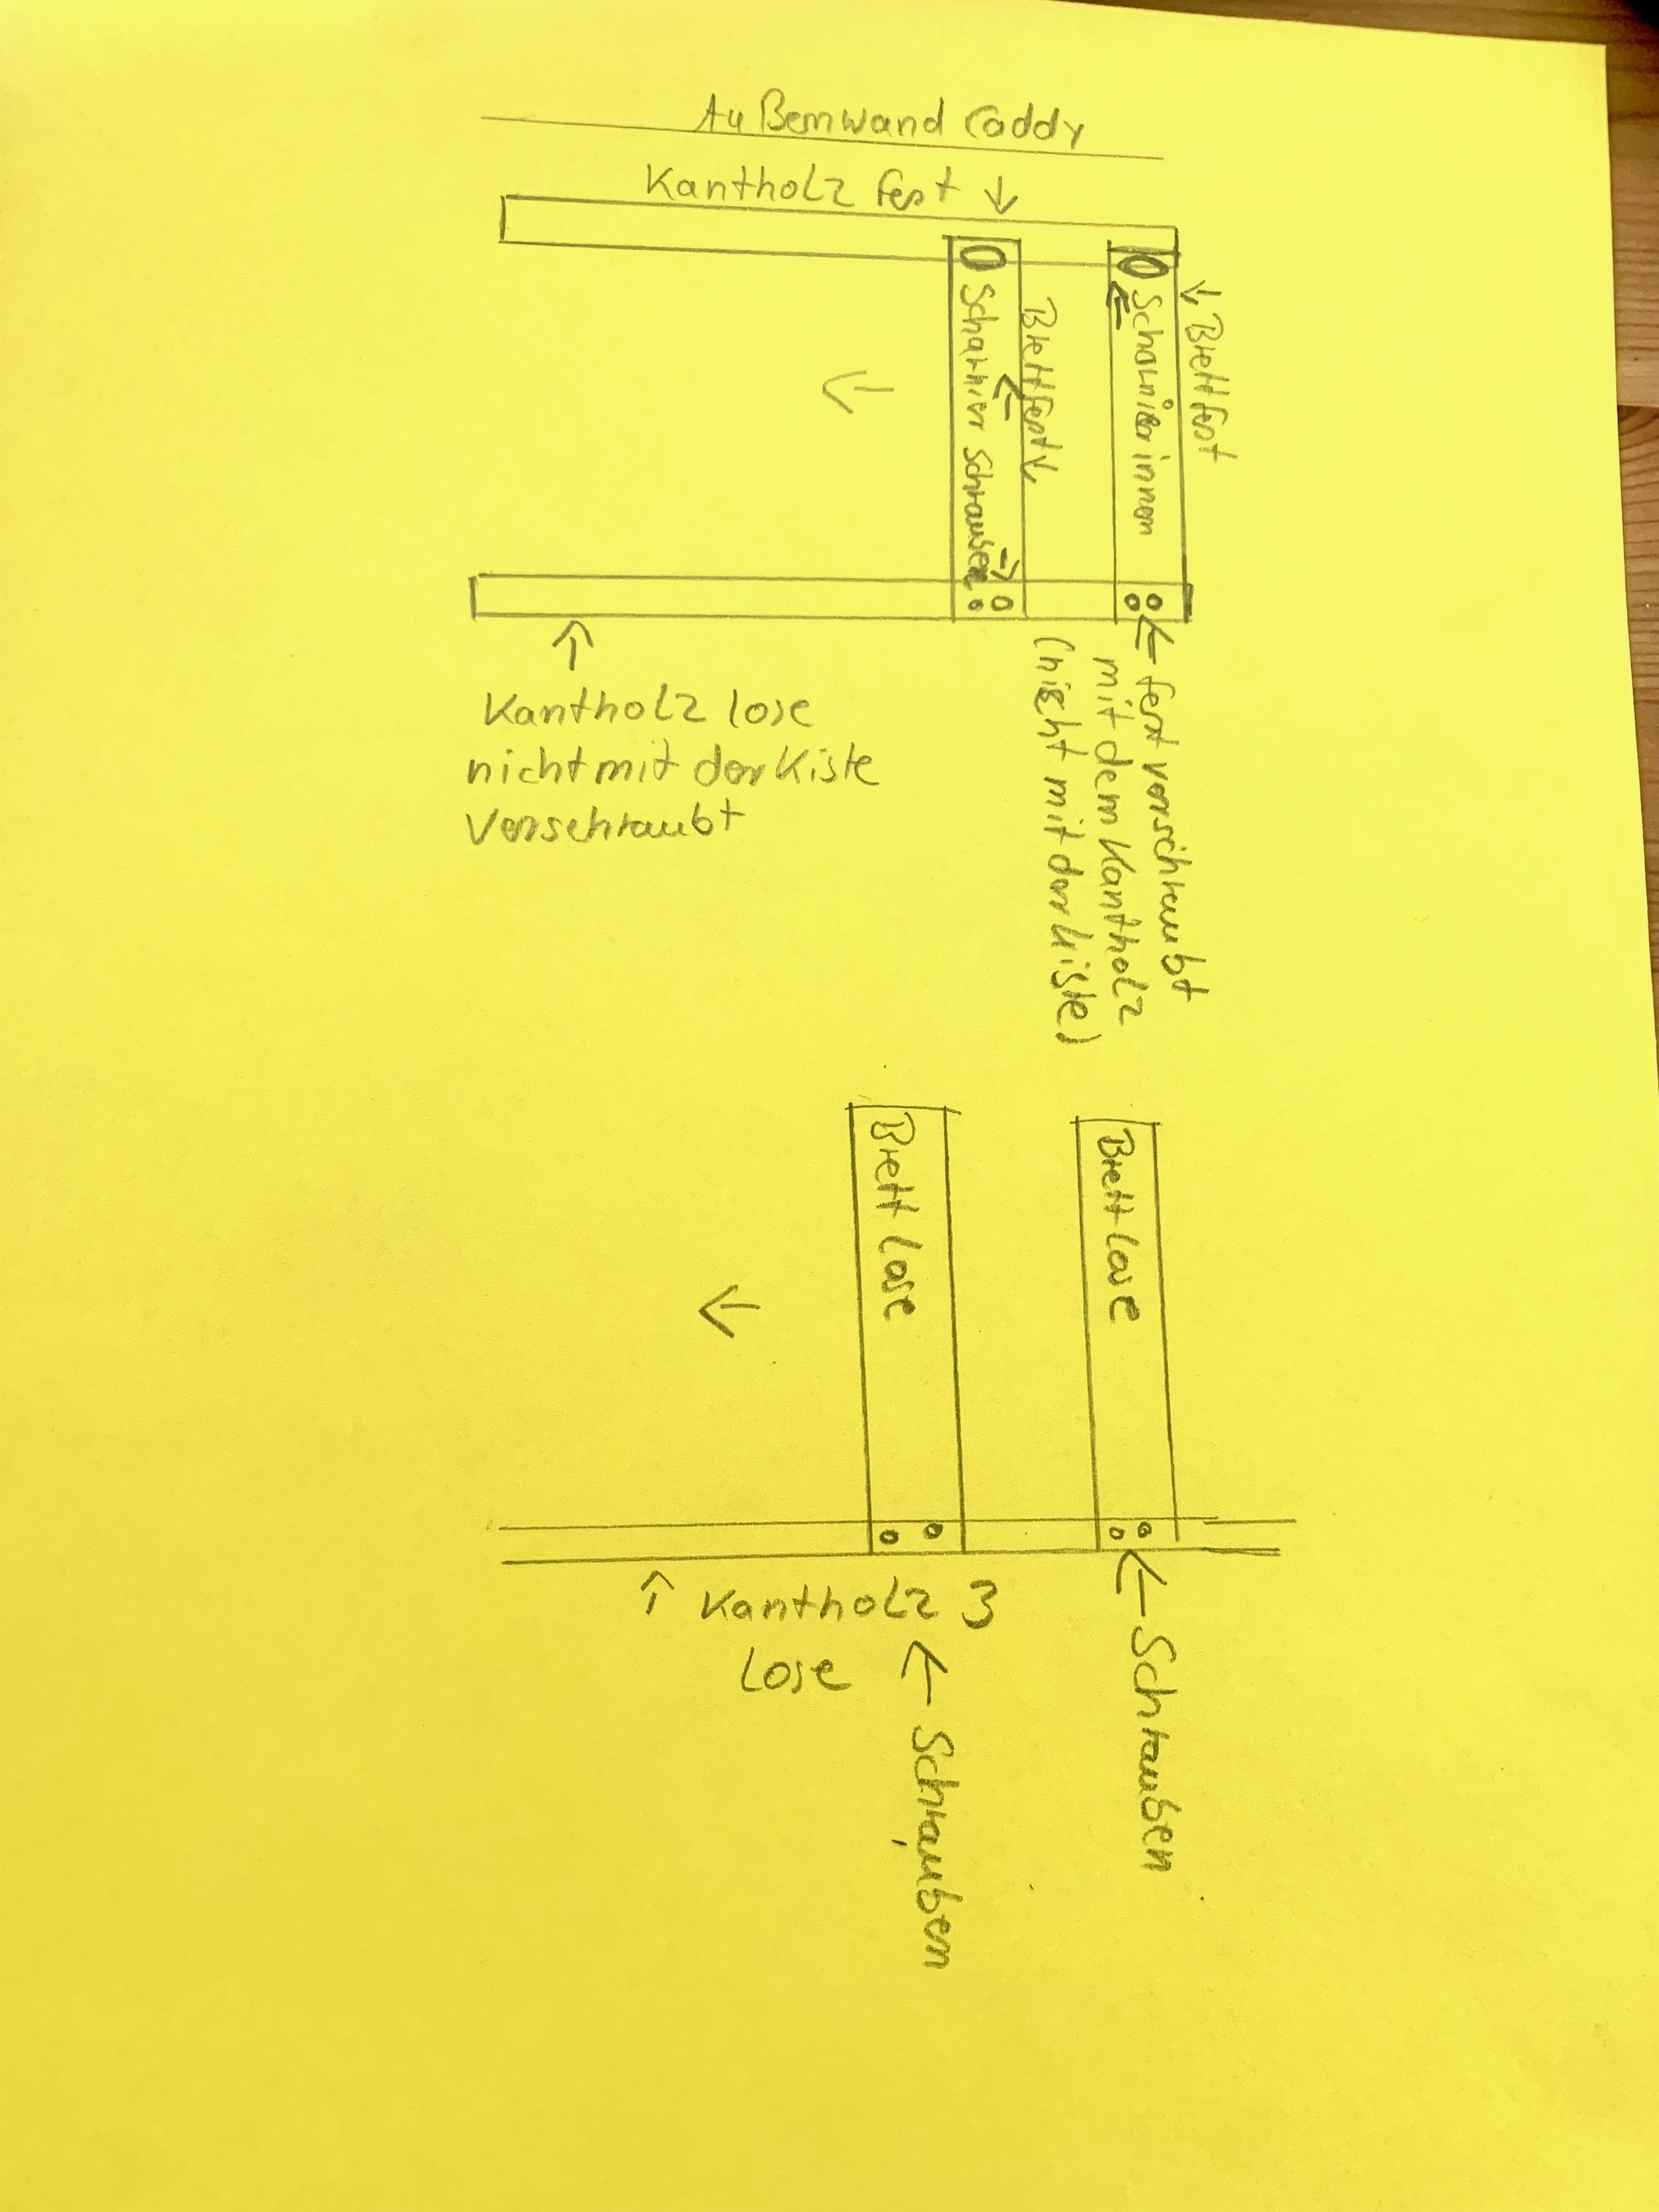 Außenwand Caddy
Kantholz fest ↓
↓ Brett fest
Scharnier innen
Brett fest ↓
Scharnier Schrauben
← fest verschraubt
mit dem Kantholz
(nicht mit der Kiste)
Kantholz lose
nicht mit der Kiste
verschraubt
Brett Lose
Brett Lose
↑ Kantholz 3
Lose
← Schrauben
← Schrauben